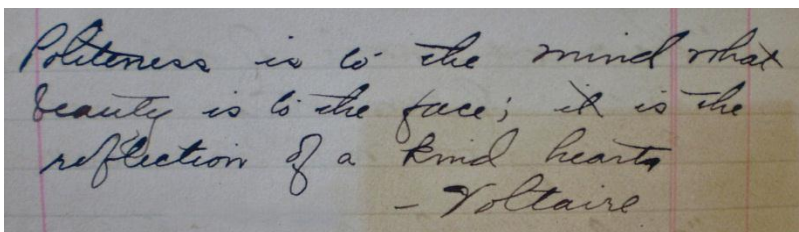 Politeness is to the mind what
beauty is to the face; it is the
reflection of a kind heart
- Voltaire